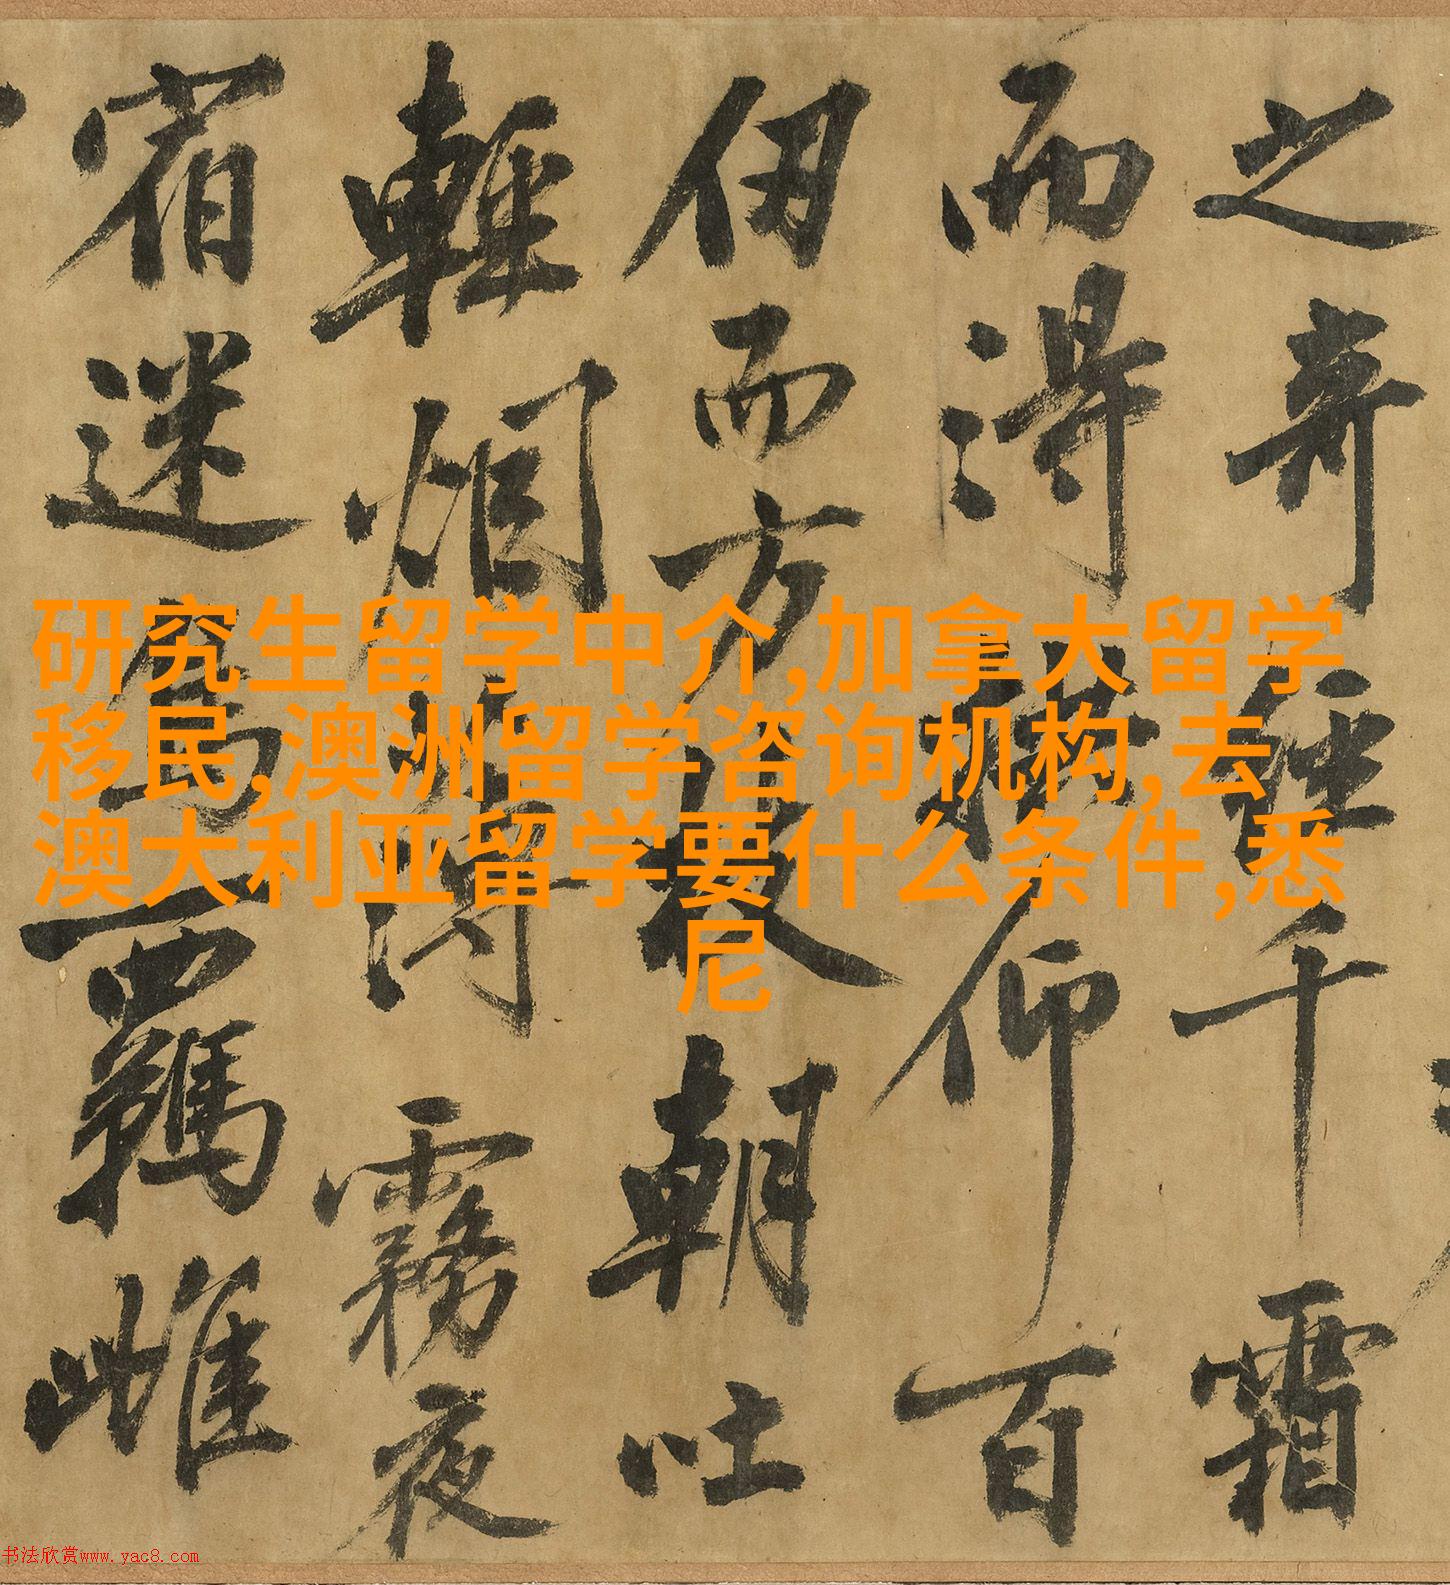 之奇經千霜
而得拱仰百
仞而方枝朝吐
輕烟薄霧夜
宿迷鳥羈雌
研究生留学中介,加拿大留学
移民,澳洲留学咨询机构,去
澳大利亚留学要什么条件,悉
尼
书法欣赏www.yac8.com